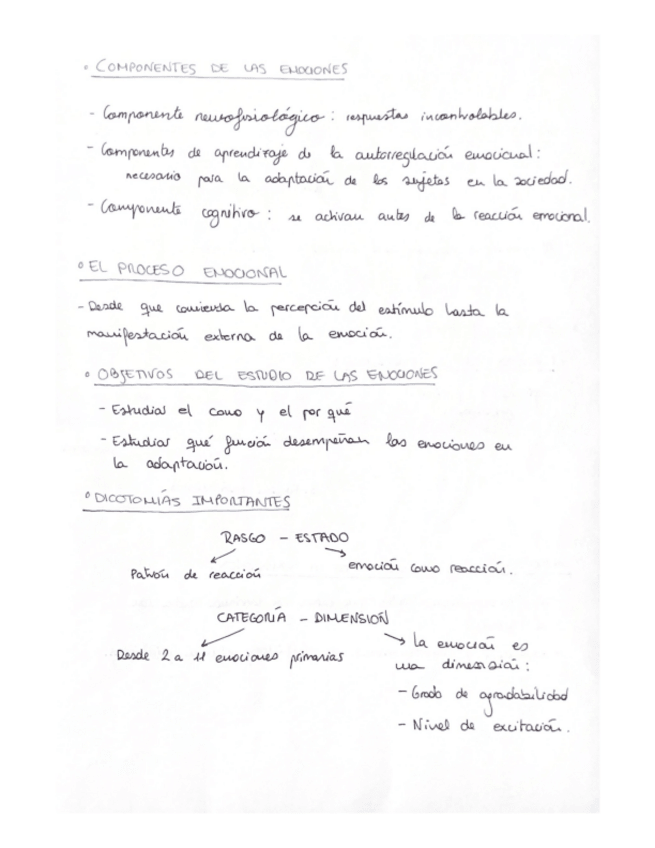 ° COMPONENTES DE LAS EMOCIONES
- Componente neurofisiológico: respuestas incontrolables.
- Componentes de aprendizaje de la autorregulación emocional:
necesario para la adaptación de los sujetos en la sociedad.
- Componente cognitivo: se activan antes de la reacción emocional.
° EL PROCESO EMOCIONAL
- Desde que comienza la percepción del estímulo hasta la
manifestación externa de la emoción.
° OBJETIVOS DEL ESTUDIO DE LAS EMOCIONES
- Estudiar el como y el por qué
- Estudiar qué función desempeñan las emociones en
la adaptación.
° DICOTOMÍAS IMPORTANTES
RASGO - ESTADO
Patrón de reacción
emoción como reacción.
CATEGORÍA - DIMENSIÓN
Desde 2 a 11 emociones primarias
la emoción es
una dimensión:
- Grado de agradabilidad
- Nivel de excitación.